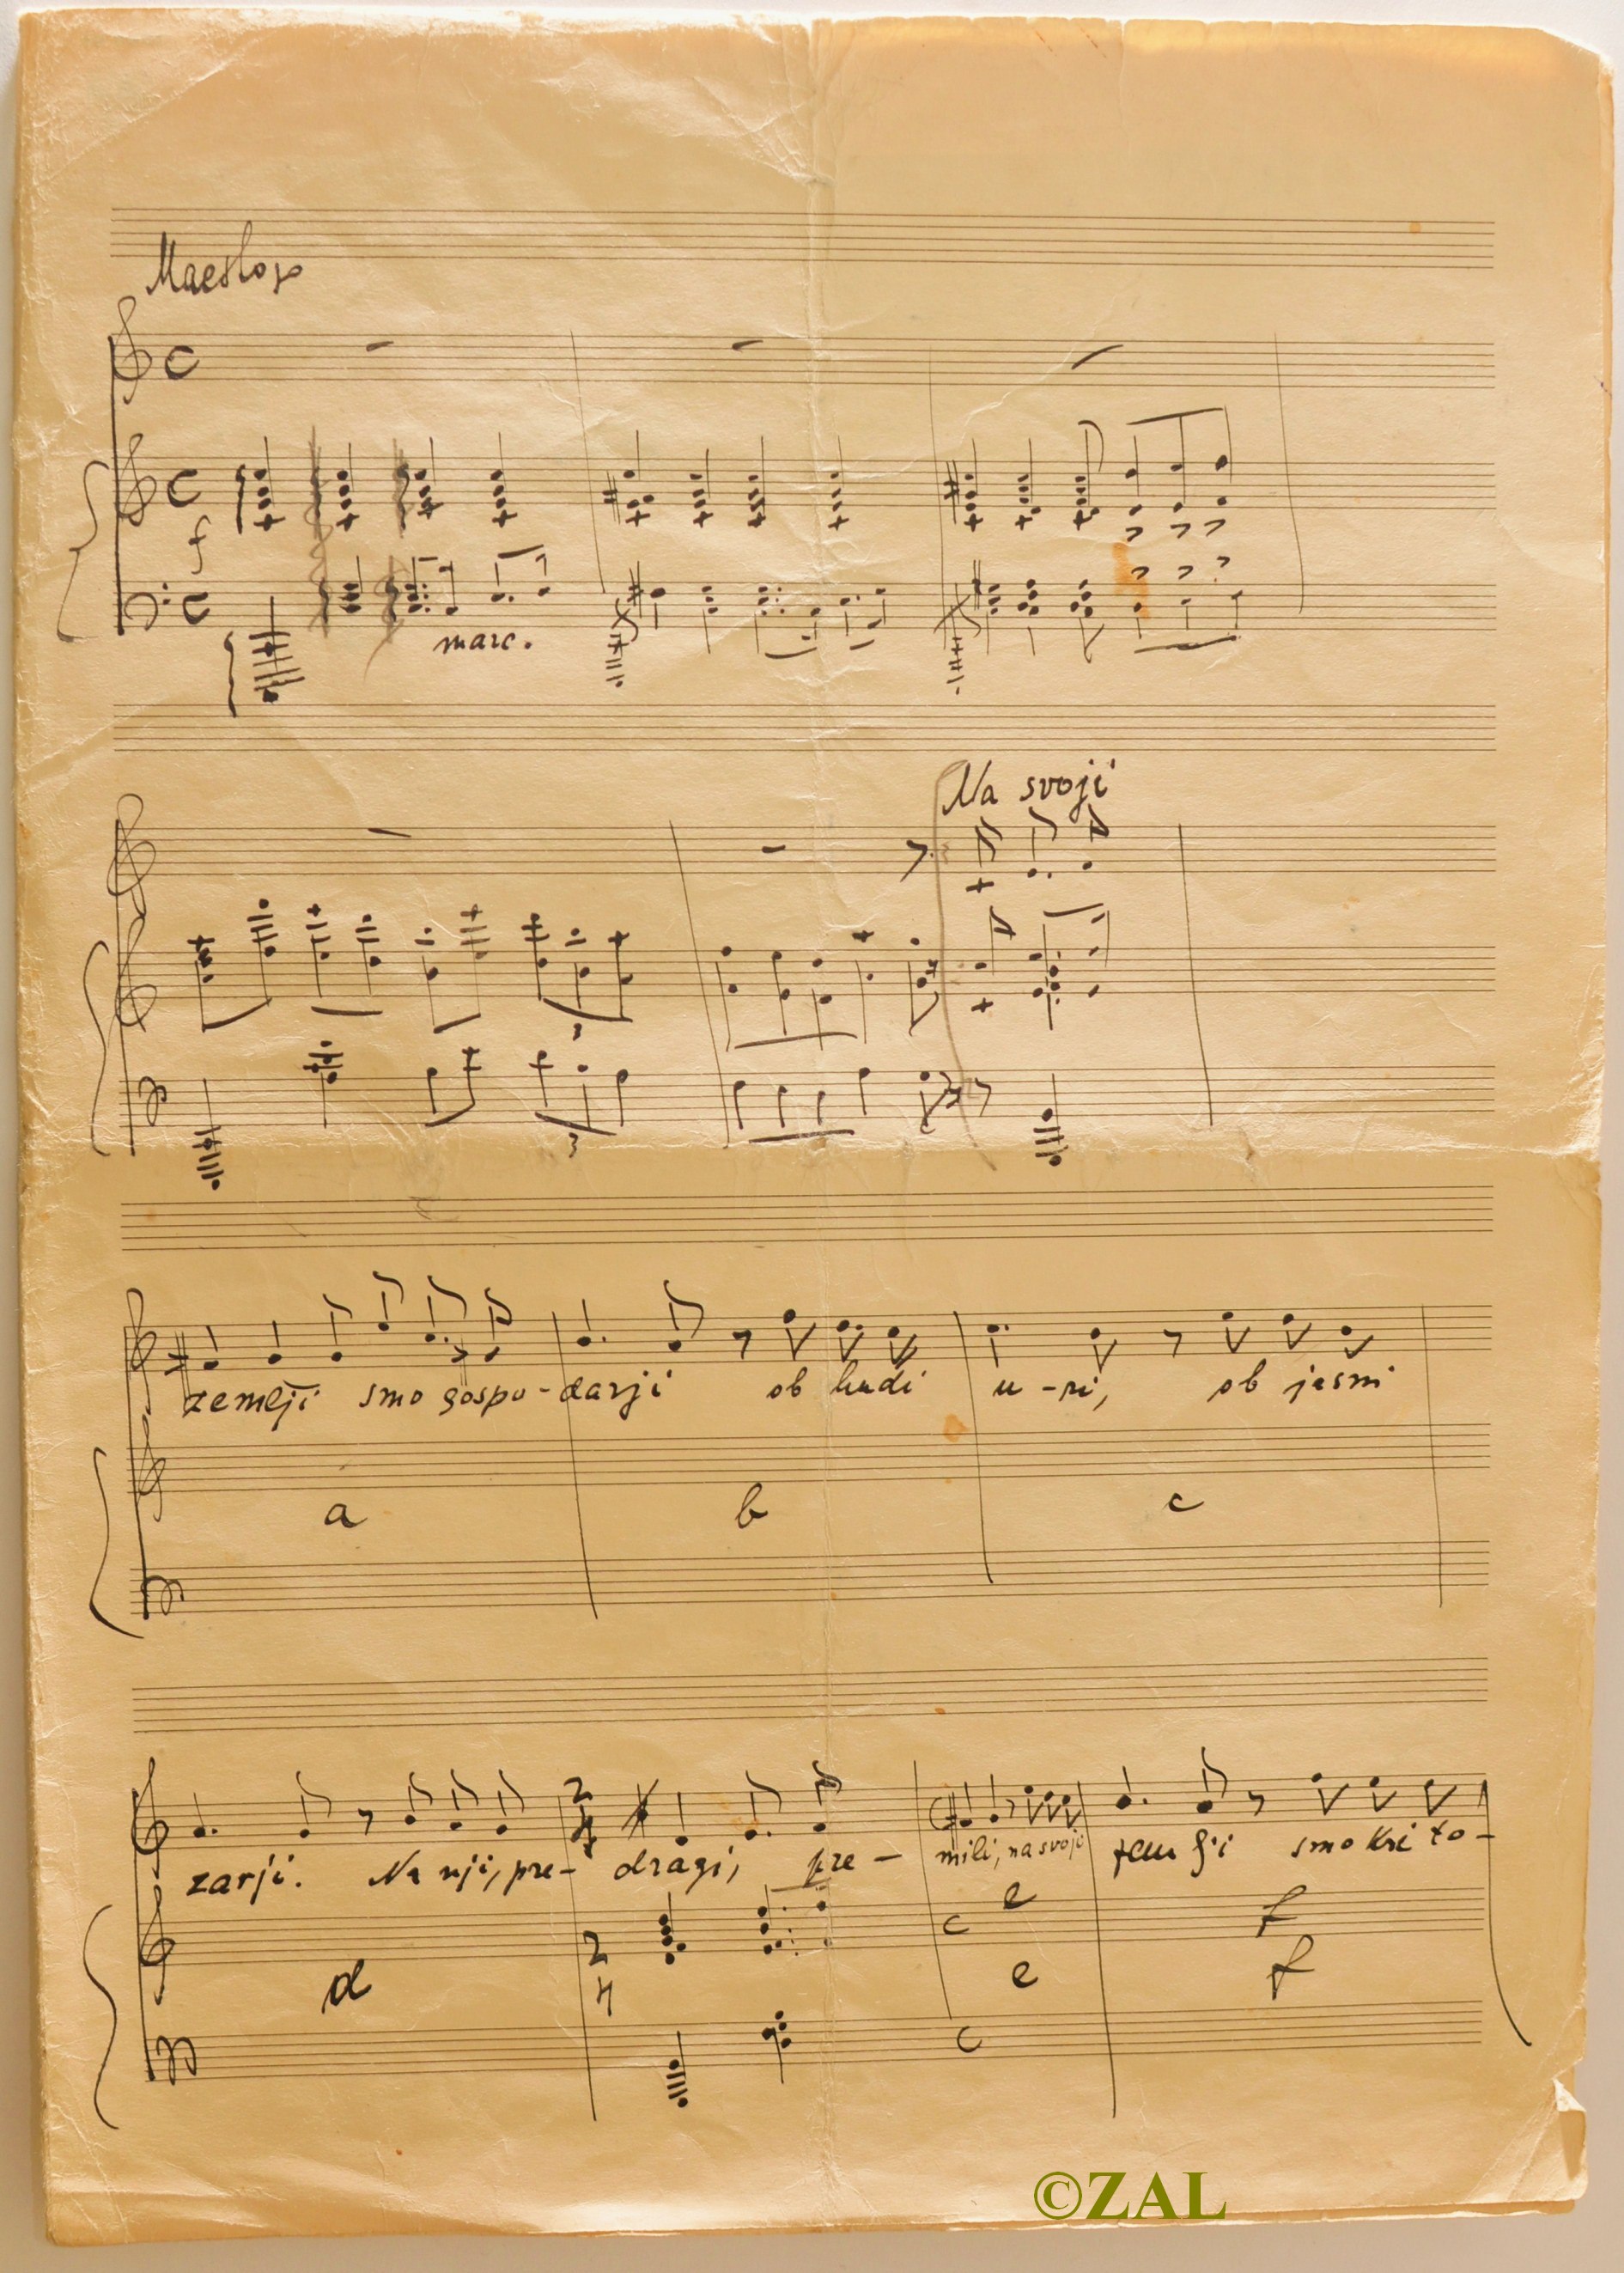 Maestoso
C
C
f
C
marc.
Na svoji
3
3
zemlji smo gospo-darji ob hudi u-ri, ob jasni
a b c
2
4
zarji. Na nji, pre- dragi, pre- mili, na svoji zemlji smo Kri to-
e f
2
4
C
d
e f
C
©ZAL